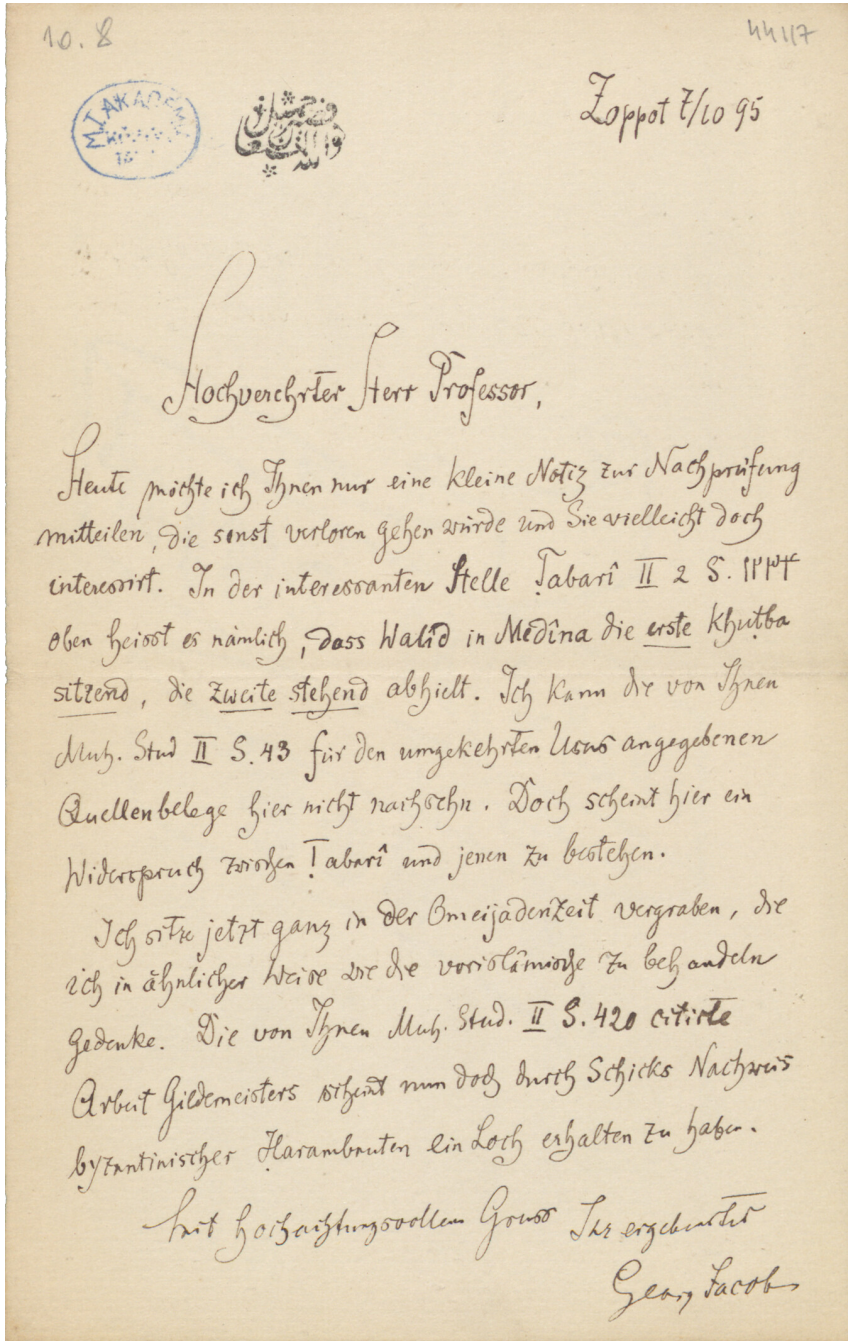 10. 8
44117
Zoppot 7/10 95
M. T. AKADÉMIA
فصبر جميل
والله المستعان
Hochverehrter Herr Professor,
Heute möchte ich Ihnen nur eine kleine Notiz zur Nachprüfung
mitteilen, die sonst verloren gehen würde und Sie vielleicht doch
interessirt. In der interessanten Stelle Ṭabarî II 2 S. ١٢٣٣
oben heisst es nämlich, dass Walîd in Medîna die erste Khuṭba
sitzend, die zweite stehend abhielt. Ich kann die von Ihnen
Muh. Stud II S. 43 für den umgekehrten Usus angegebenen
Quellenbelege hier nicht nachsehn. Doch scheint hier ein
Widerspruch zwischen Ṭabarî und jenen zu bestehen.
Ich sitze jetzt ganz in der Omeijadenzeit vergraben, die
ich in ähnlicher Weise wie die vorislâmische zu behandeln
gedenke. Die von Ihnen Muh. Stud. II S. 420 citirte
Arbeit Gildemeisters scheint nun doch durch Schicks Nachweis
byzantinischer Ḥarambauten ein Loch erhalten zu haben.
Mit hochachtungsvollem Gruss Ihr ergebenster
Georg Jacob